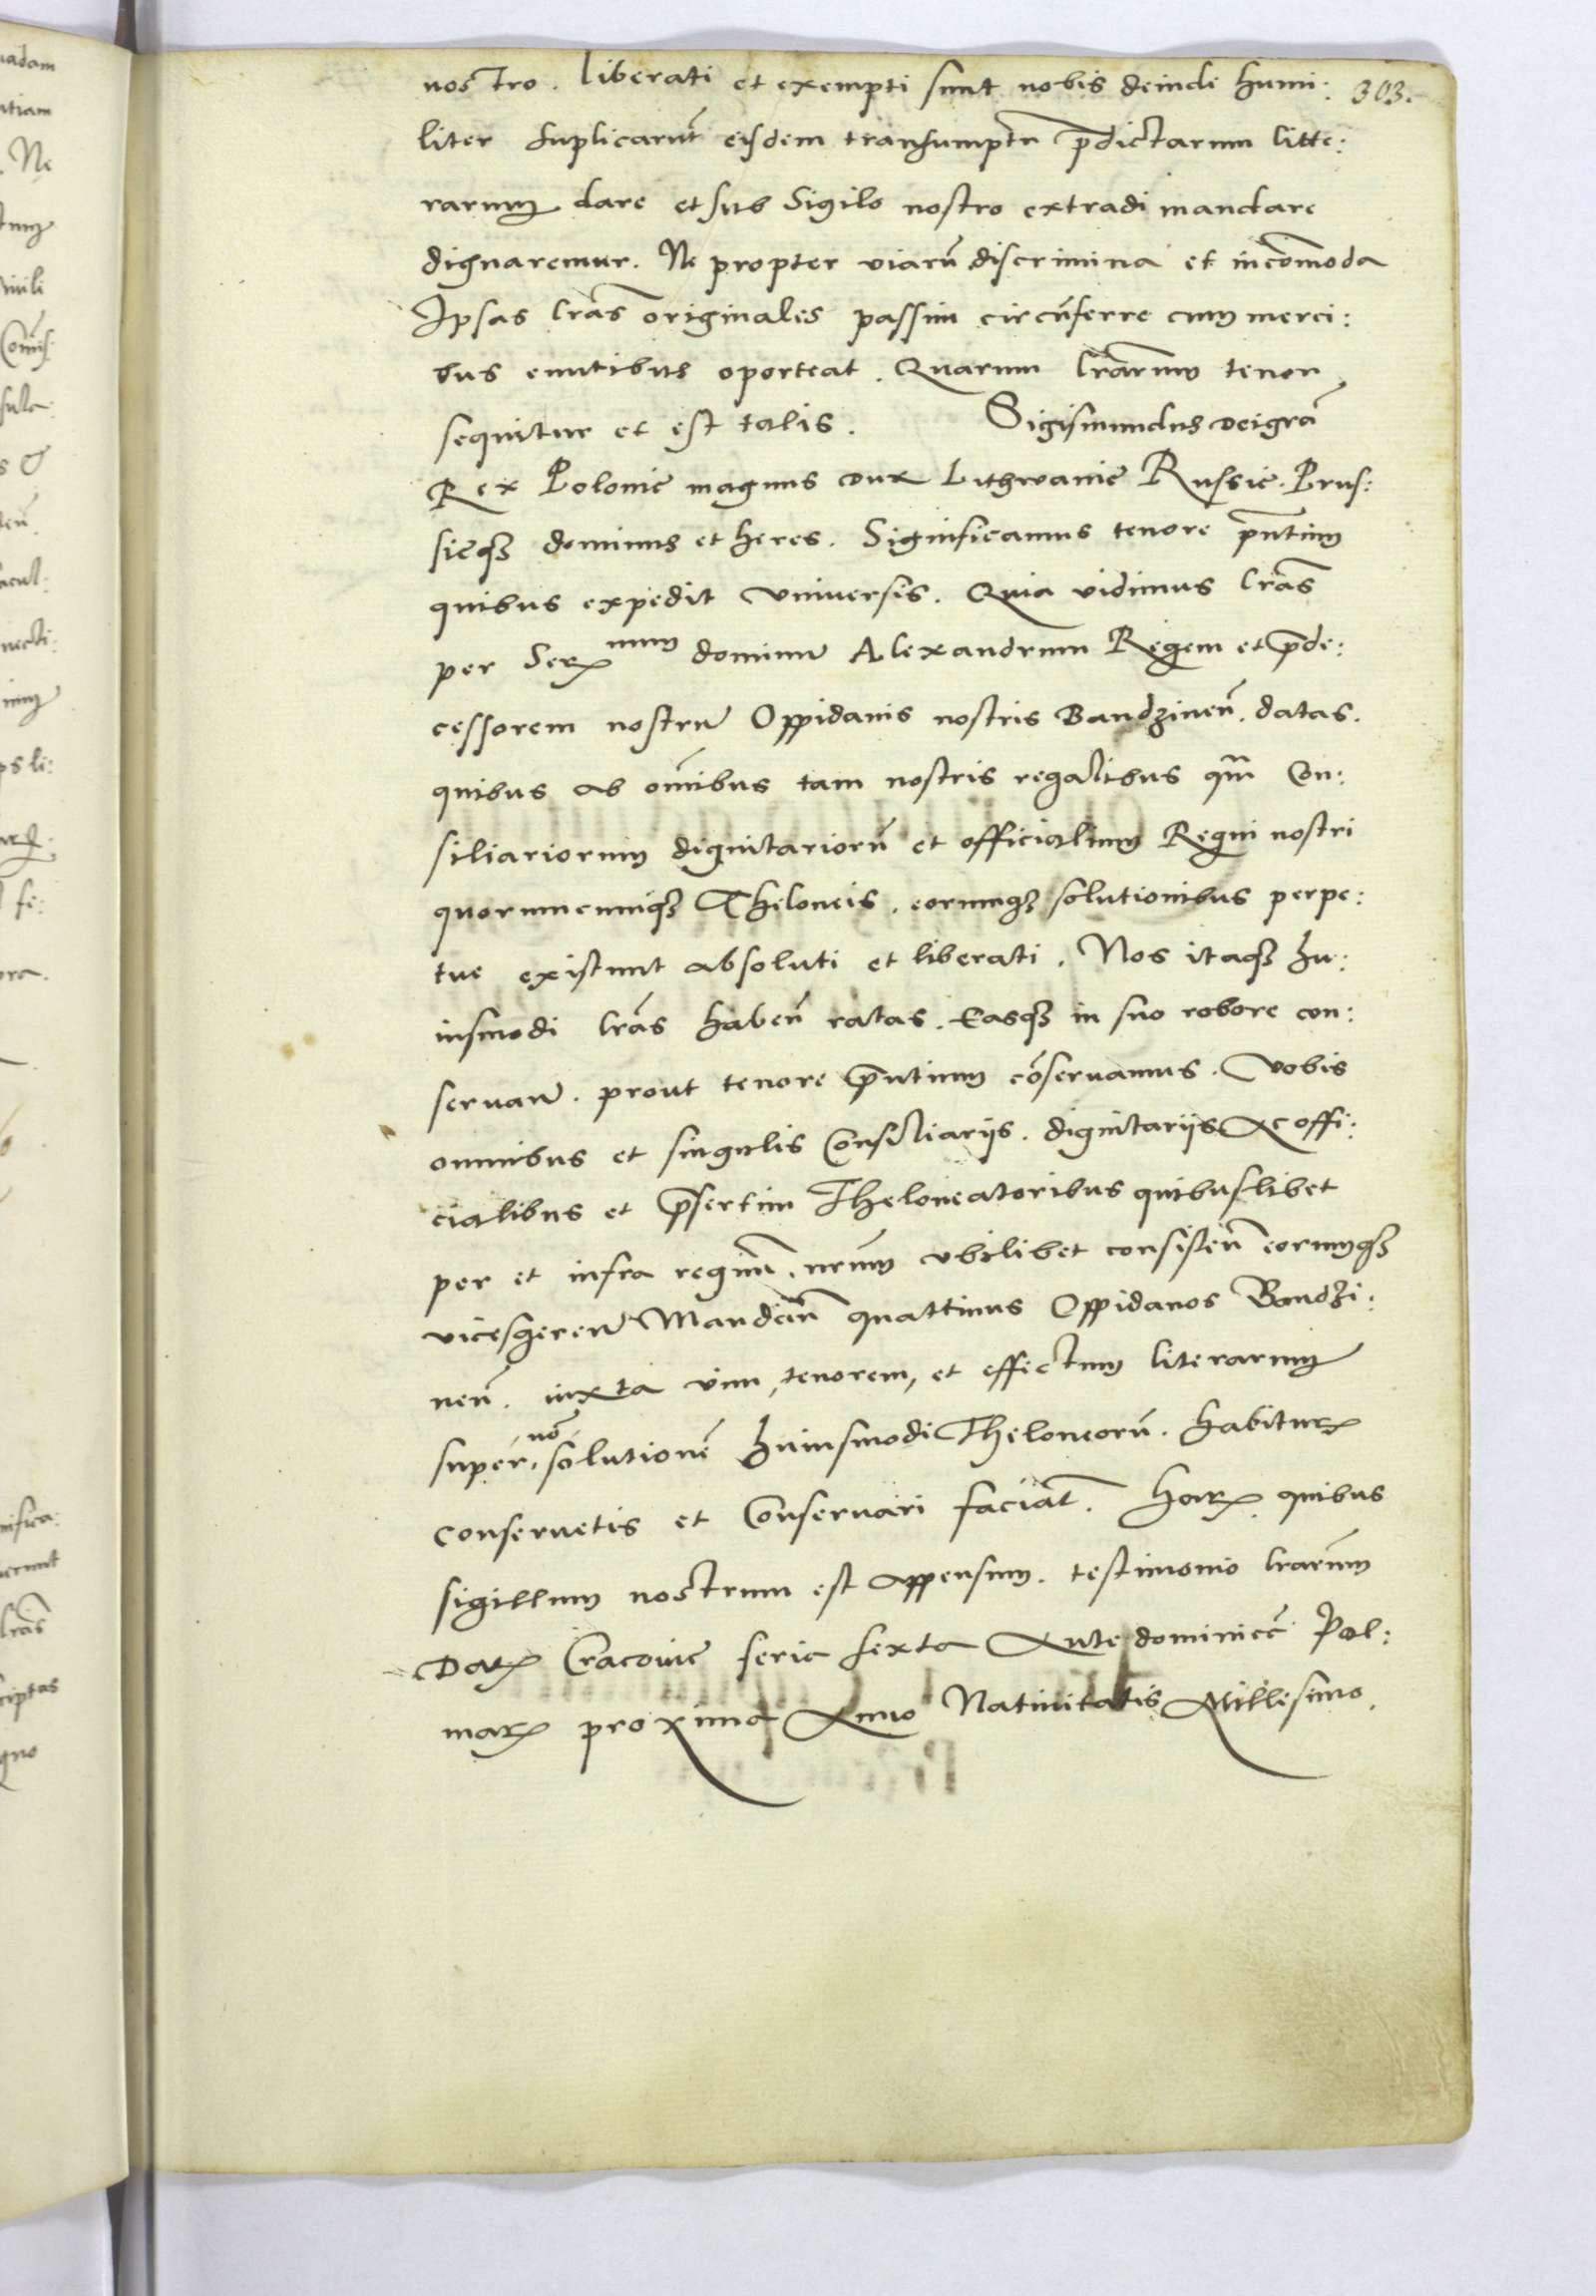 303.
nostro. liberati et exempti sunt nobis deinde humi:
liter suplicarūt eisdem transumptū p̄dictarum litte:
rarum dare et sub Sigilo nostro extradi mandare
dignaremur. Ne propter viarū discrimina et incōmoda
Ipsas l̄ras originales passim circūferre cum merci:
bus euntibus oporteat. Quarum l̄rarum tenor
sequitur et est talis. Sigismundus dei gr̄a
Rex Polonię magnus dux Lithwanię Russię. Prus:
sięqȝ dominus et heres. Significamus tenore p̄ntium
quibus expedit vniuersis. Quia vidimus l̄ras
per Ser^mum dominū Alexandrum Regem et p̄de:
cessorem nostrū Oppidanis nostris Bandzinen̄. datas.
quibus ab om̄ibus tam nostris regalibus qm̄ Con:
siliariorum dignitariorū et officialium Regni nostri
quorumcumqȝ Theloneis. eorumqȝ solutionibus perpe:
tue existunt absoluti et liberati. Nos itaqȝ hu:
iusmodi l̄ras haben̄ ratas. Easqȝ in suo robore con:
seruan̄. prout tenore p̄ntium cōseruamus. Vobis
omnibus et singulis Consiliariis. dignitariis Ac offi:
cialibus et p̄sertim Theloneatoribus quibuslibet
per et infra regnum̄. nr̄um vbilibet consisten̄ eorumqȝ
vicesgeren̄ Mandam̄ quattinus Oppidanos Bandzi:
nen̄. iuxta vim, tenorem, et effectum literarum
super nō solutionē huiusmodi Theloneorū. habitarꝝ
conseruetis et Conseruari faciat̄. Harꝝ quibus
sigillum nostrum est appensum. testimonio l̄rarum
Datꝝ Cracovię feria sexta Ante dominicā Pal:
marꝝ proxima Anno Natiuitatis Millesimo.